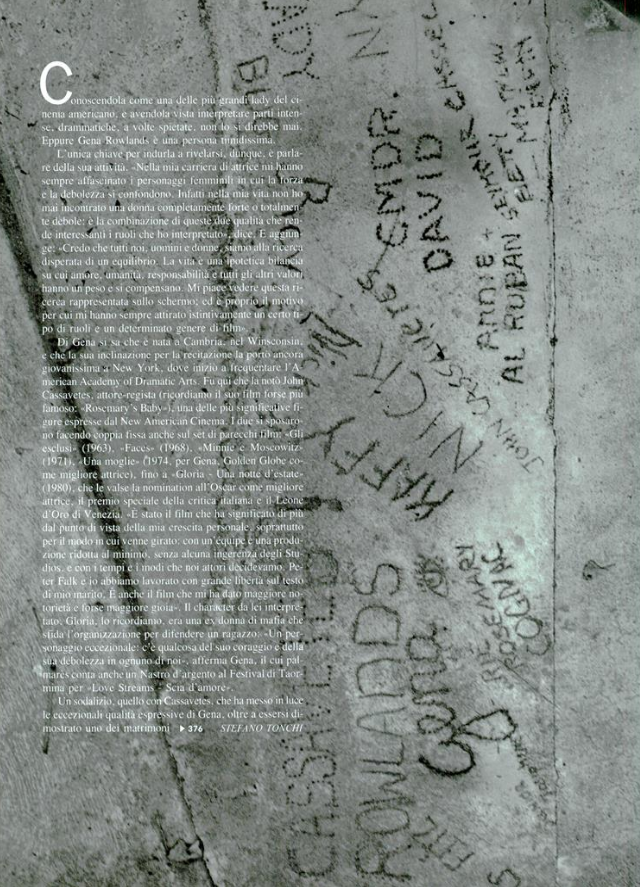 Conoscendola come una delle più grandi lady del ci-
nema americano, e avendola vista interpretare parti inten-
se, drammatiche, a volte spietate, non lo si direbbe mai.
Eppure Gena Rowlands è una persona timidissima.
L'unica chiave per indurla a rivelarsi, dunque, è parla-
re della sua attività. «Nella mia carriera di attrice mi hanno
sempre affascinato i personaggi femminili in cui la forza
e la debolezza si confondono. Infatti nella mia vita non ho
mai incontrato una donna completamente forte o totalmen-
te debole: è la combinazione di queste due qualità che ren-
de interessanti i ruoli che ho interpretato», dice. E aggiun-
ge: «Credo che tutti noi, uomini e donne, siamo alla ricerca
disperata di un equilibrio. La vita è una ipotetica bilancia
su cui amore, umanità, responsabilità e tutti gli altri valori
hanno un peso e si compensano. Mi piace vedere questa ri-
cerca rappresentata sullo schermo; ed è proprio il motivo
per cui mi hanno sempre attirato istintivamente un certo ti-
po di ruoli e un determinato genere di film».
Di Gena si sa che è nata a Cambria, nel Winsconsin,
e che la sua inclinazione per la recitazione la portò ancora
giovanissima a New York, dove iniziò a frequentare l'A-
merican Academy of Dramatic Arts. Fu qui che la notò John
Cassavetes, attore-regista (ricordiamo il suo film forse più
famoso: «Rosemary's Baby»), una delle più significative fi-
gure espresse dal New American Cinema. I due si sposaro-
no facendo coppia fissa anche sul set di parecchi film: «Gli
esclusi» (1963), «Faces» (1968), «Minnie e Moscowitz»
(1971), «Una moglie» (1974, per Gena, Golden Globe co-
me migliore attrice), fino a «Gloria - Una notte d'estate»
(1980), che le valse la nomination all'Oscar come migliore
attrice, il premio speciale della critica italiana e il Leone
d'Oro di Venezia. «È stato il film che ha significato di più
dal punto di vista della mia crescita personale, soprattutto
per il modo in cui venne girato: con un'équipe e una produ-
zione ridotta al minimo, senza alcuna ingerenza degli Stu-
dios, e con i tempi e i modi che noi attori decidevamo. Pe-
ter Falk e io abbiamo lavorato con grande libertà sul testo
di mio marito. È anche il film che mi ha dato maggiore no-
torietà e forse maggiore gioia». Il character da lei interpre-
tato, Gloria, lo ricordiamo, era una ex donna di mafia che
sfida l'organizzazione per difendere un ragazzo: «Un per-
sonaggio eccezionale: c'è qualcosa del suo coraggio e della
sua debolezza in ognuno di noi», afferma Gena, il cui pal-
marès conta anche un Nastro d'argento al Festival di Taor-
mina per «Love Streams - Scia d'amore».
Un sodalizio, quello con Cassavetes, che ha messo in luce
le eccezionali qualità espressive di Gena, oltre a essersi di-
mostrato uno dei matrimoni ▶ 376 STEFANO TONCHI
LADY
NY
EMDR.
DAVID CASSEL
ANNIE + SEYMOUR CASSEL
AL RUBAN
BETTY
JOHN CASSAVETES
NICK
Nick
ROSEMARI
CASSAVETES
ROWLANDS
Gena